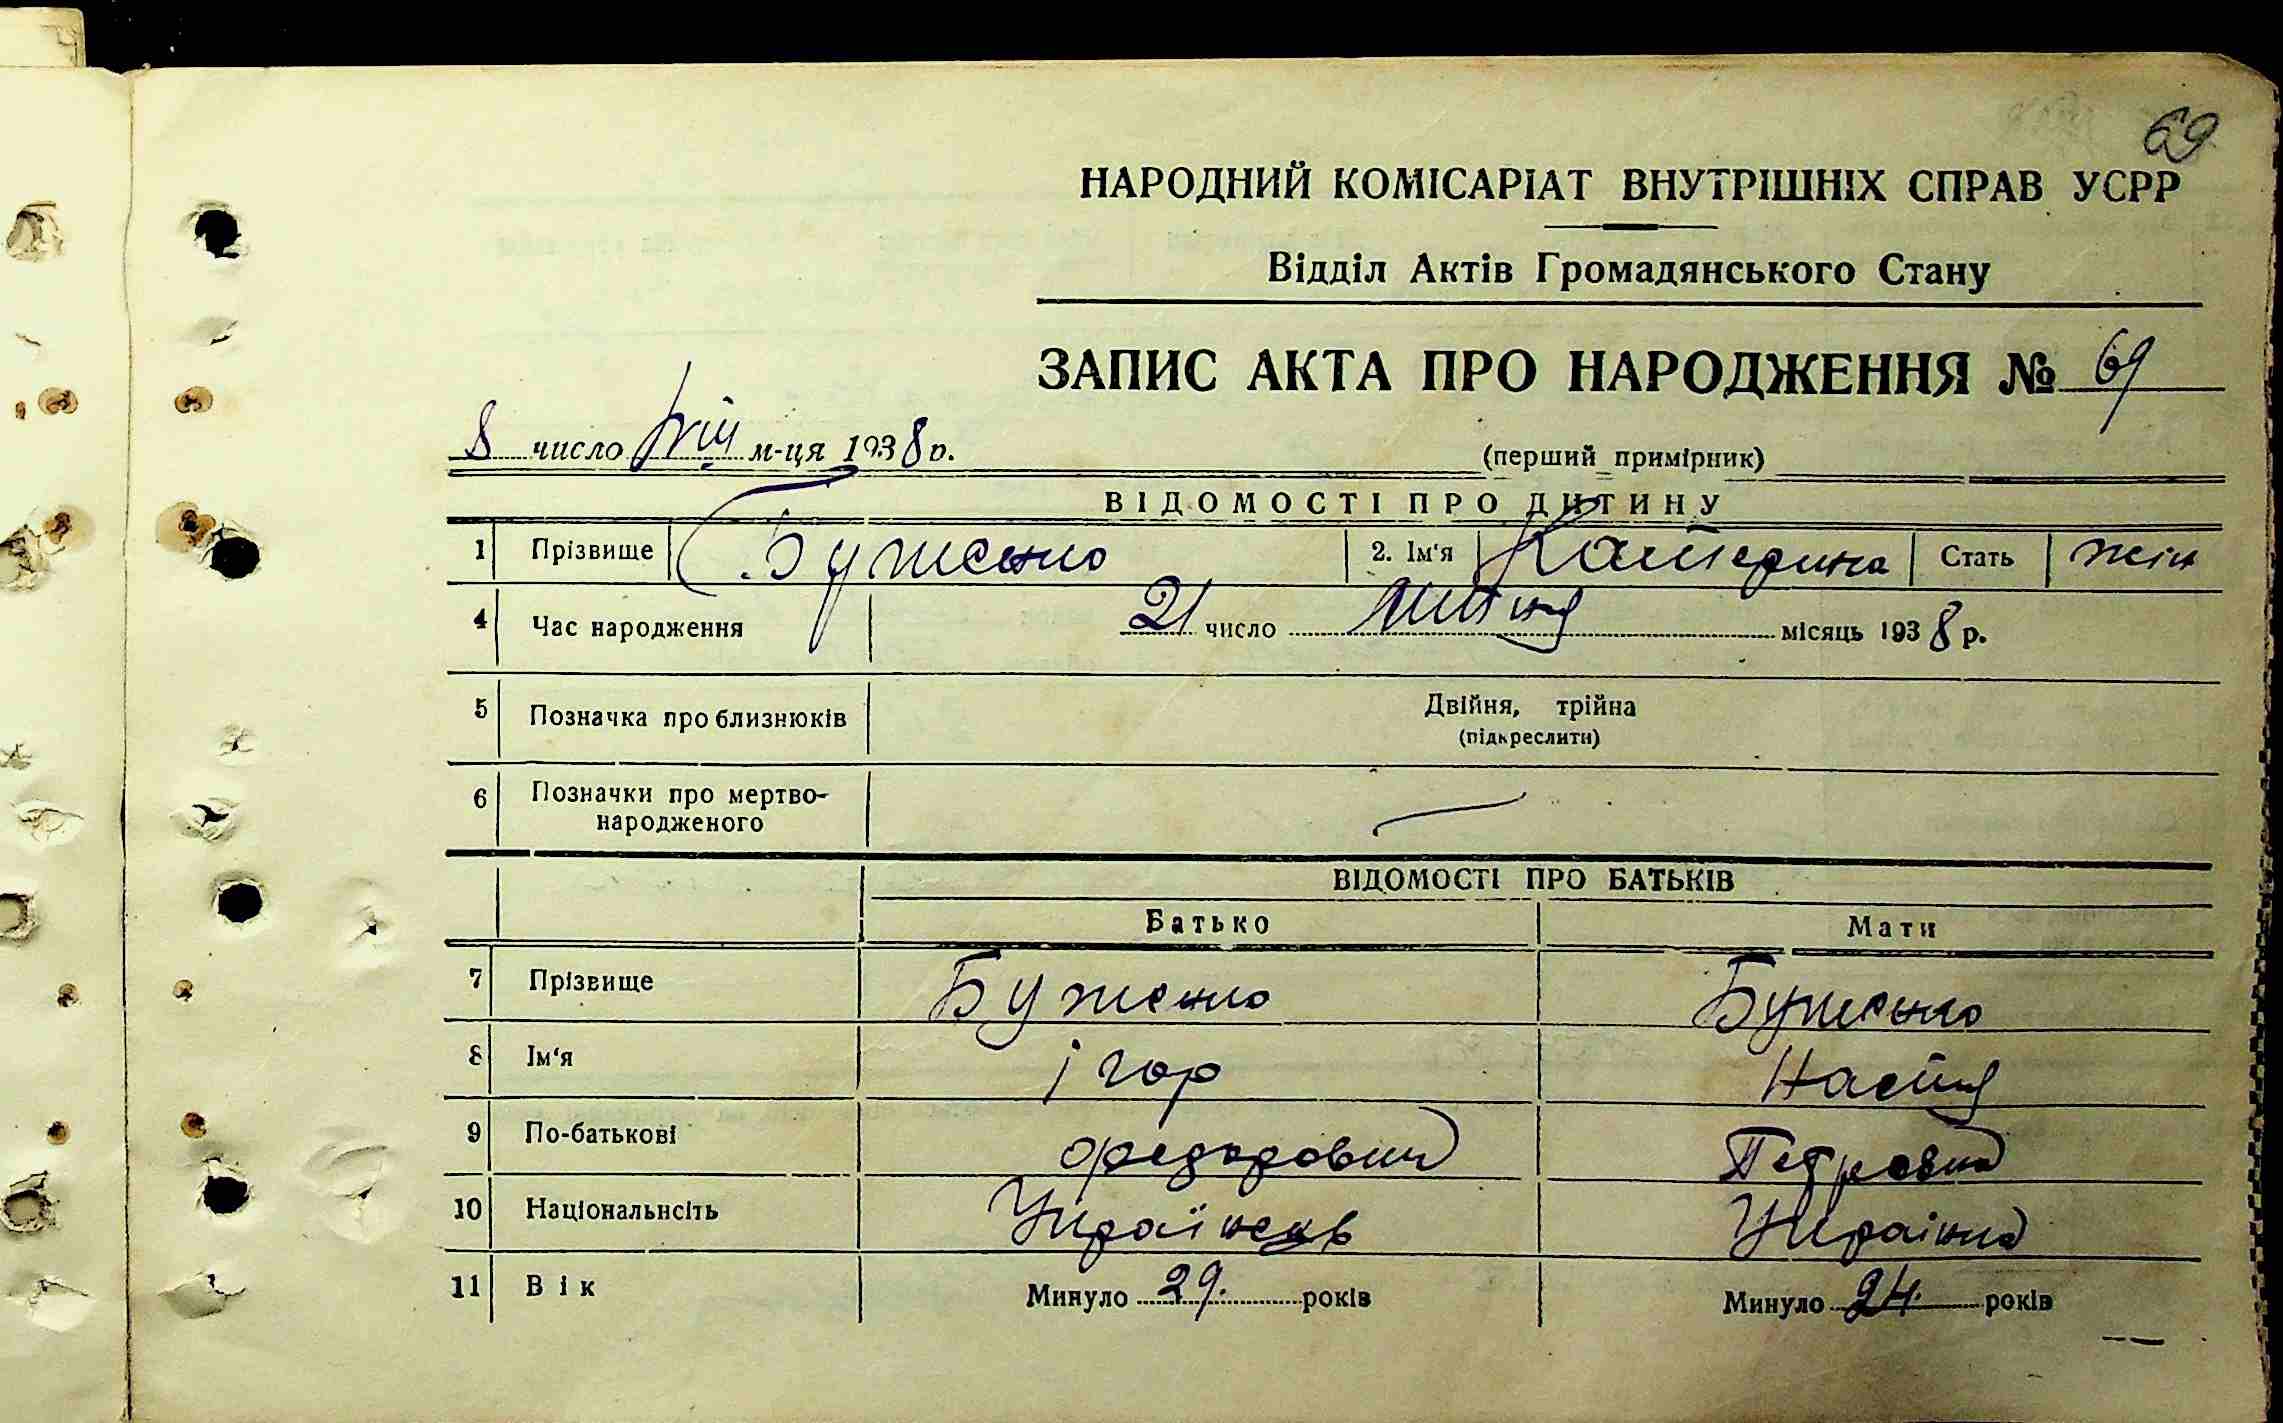 69
НАРОДНИЙ КОМІСАРІАТ ВНУТРІШНІХ СПРАВ УСРР
Відділ Актів Громадянського Стану
ЗАПИС АКТА ПРО НАРОДЖЕННЯ № 69
8 число VIII м-ця 1938 р.
(перший примірник)
ВІДОМОСТІ ПРО ДИТИНУ
1 Прізвище Буженко 2. Ім'я Катерина Стать жін
4 Час народження 21 число липня місяць 1938 р.
5 Позначка про близнюків Двійня, трійна
(підкреслити)
6 Позначки про мертво-
народженого —
ВІДОМОСТІ ПРО БАТЬКІВ
Батько Мати
7 Прізвище Буженко Буженко
8 Ім'я Ігор Настя
9 По-батькові Федорович Петровна
10 Національнсіть Українець Українка
11 Вік Минуло 29. років Минуло 24. років